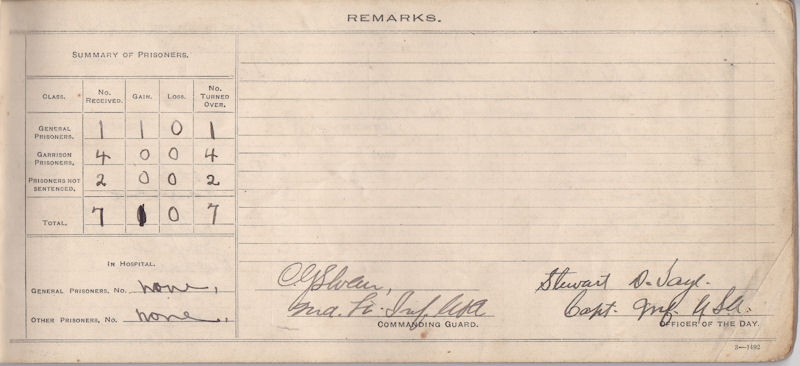 REMARKS.
SUMMARY OF PRISONERS.
CLASS. NO. RECEIVED. GAIN. LOSS. NO. TURNED OVER.
GENERAL PRISONERS. 1 1 0 1
GARRISON PRISONERS. 4 0 0 4
PRISONERS NOT SENTENCED. 2 0 0 2
TOTAL. 7 0 7
IN HOSPITAL.
GENERAL PRISONERS, NO. none,
OTHER PRISONERS, NO. none,
Inf. USA
COMMANDING GUARD.
Stewart D.
Capt. Inf. USA.
OFFICER OF THE DAY.
3—1492